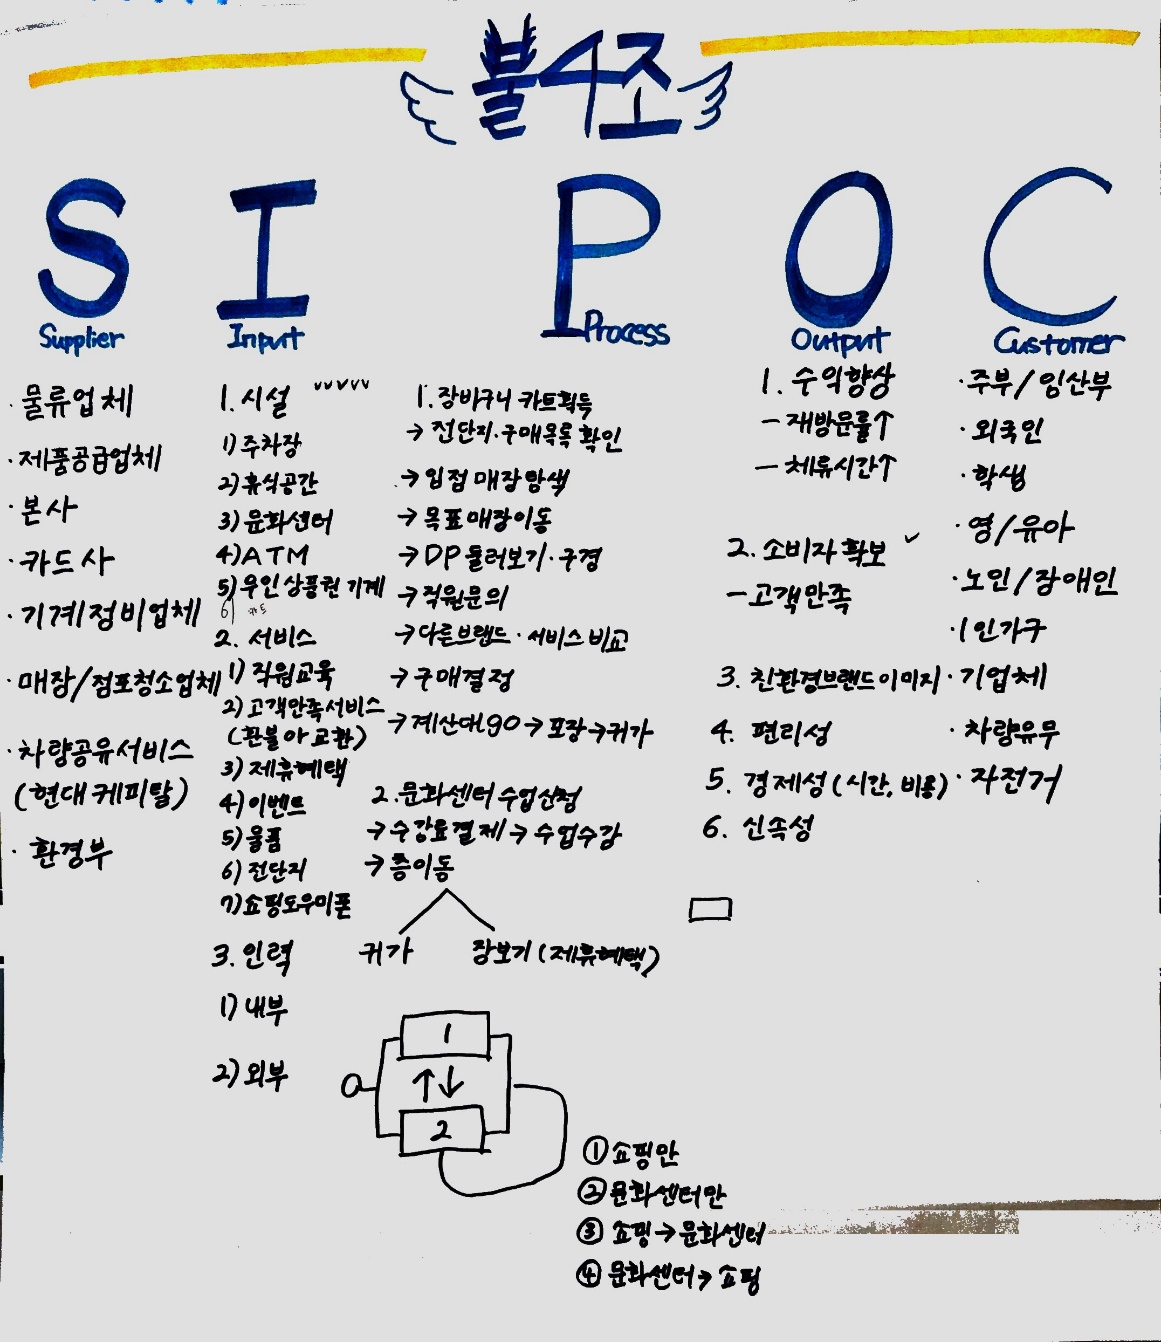 불4조
S I P O C
Supplier
Input
Process
Output
Customer
· 물류업체
· 제품공급업체
· 본사
· 카드사
· 기계정비업체
· 매장/점포청소업체
· 차량공유서비스
(현대케피탈)
· 환경부
1. 시설
1) 주차장
2) 휴식공간
3) 문화센터
4) ATM
5) 무인상품권 기계
6)
2. 서비스
1) 직원교육
2) 고객만족서비스
(환불 or 교환)
3) 제휴혜택
4) 이벤트
5) 물품
6) 전단지
7) 쇼핑도우미폰
3. 인력
1) 내부
2) 외부
1. 장바구니 카트획득
→ 전단지·구매목록 확인
→ 입점 매장탐색
→ 목표매장이동
→ DP 둘러보기·구경
→ 직원문의
→ 다른브랜드·서비스 비교
→ 구매결정
→ 계산대 go → 포장 → 귀가
2. 문화센터 수업선정
→ 수강료결제 → 수업수강
→ 층이동
귀가
장보기 (제휴혜택)
1
↑↓
2
① 쇼핑만
② 문화센터만
③ 쇼핑 → 문화센터
④ 문화센터 → 쇼핑
1. 수익향상
- 재방문률↑
- 체류시간↑
2. 소비자확보
- 고객만족
3. 친환경브랜드이미지
4. 편리성
5. 경제성 (시간, 비용)
6. 신속성
· 주부/임산부
· 외국인
· 학생
· 영/유아
· 노인/장애인
· 1인가구
· 기업체
· 차량유무
· 자전거